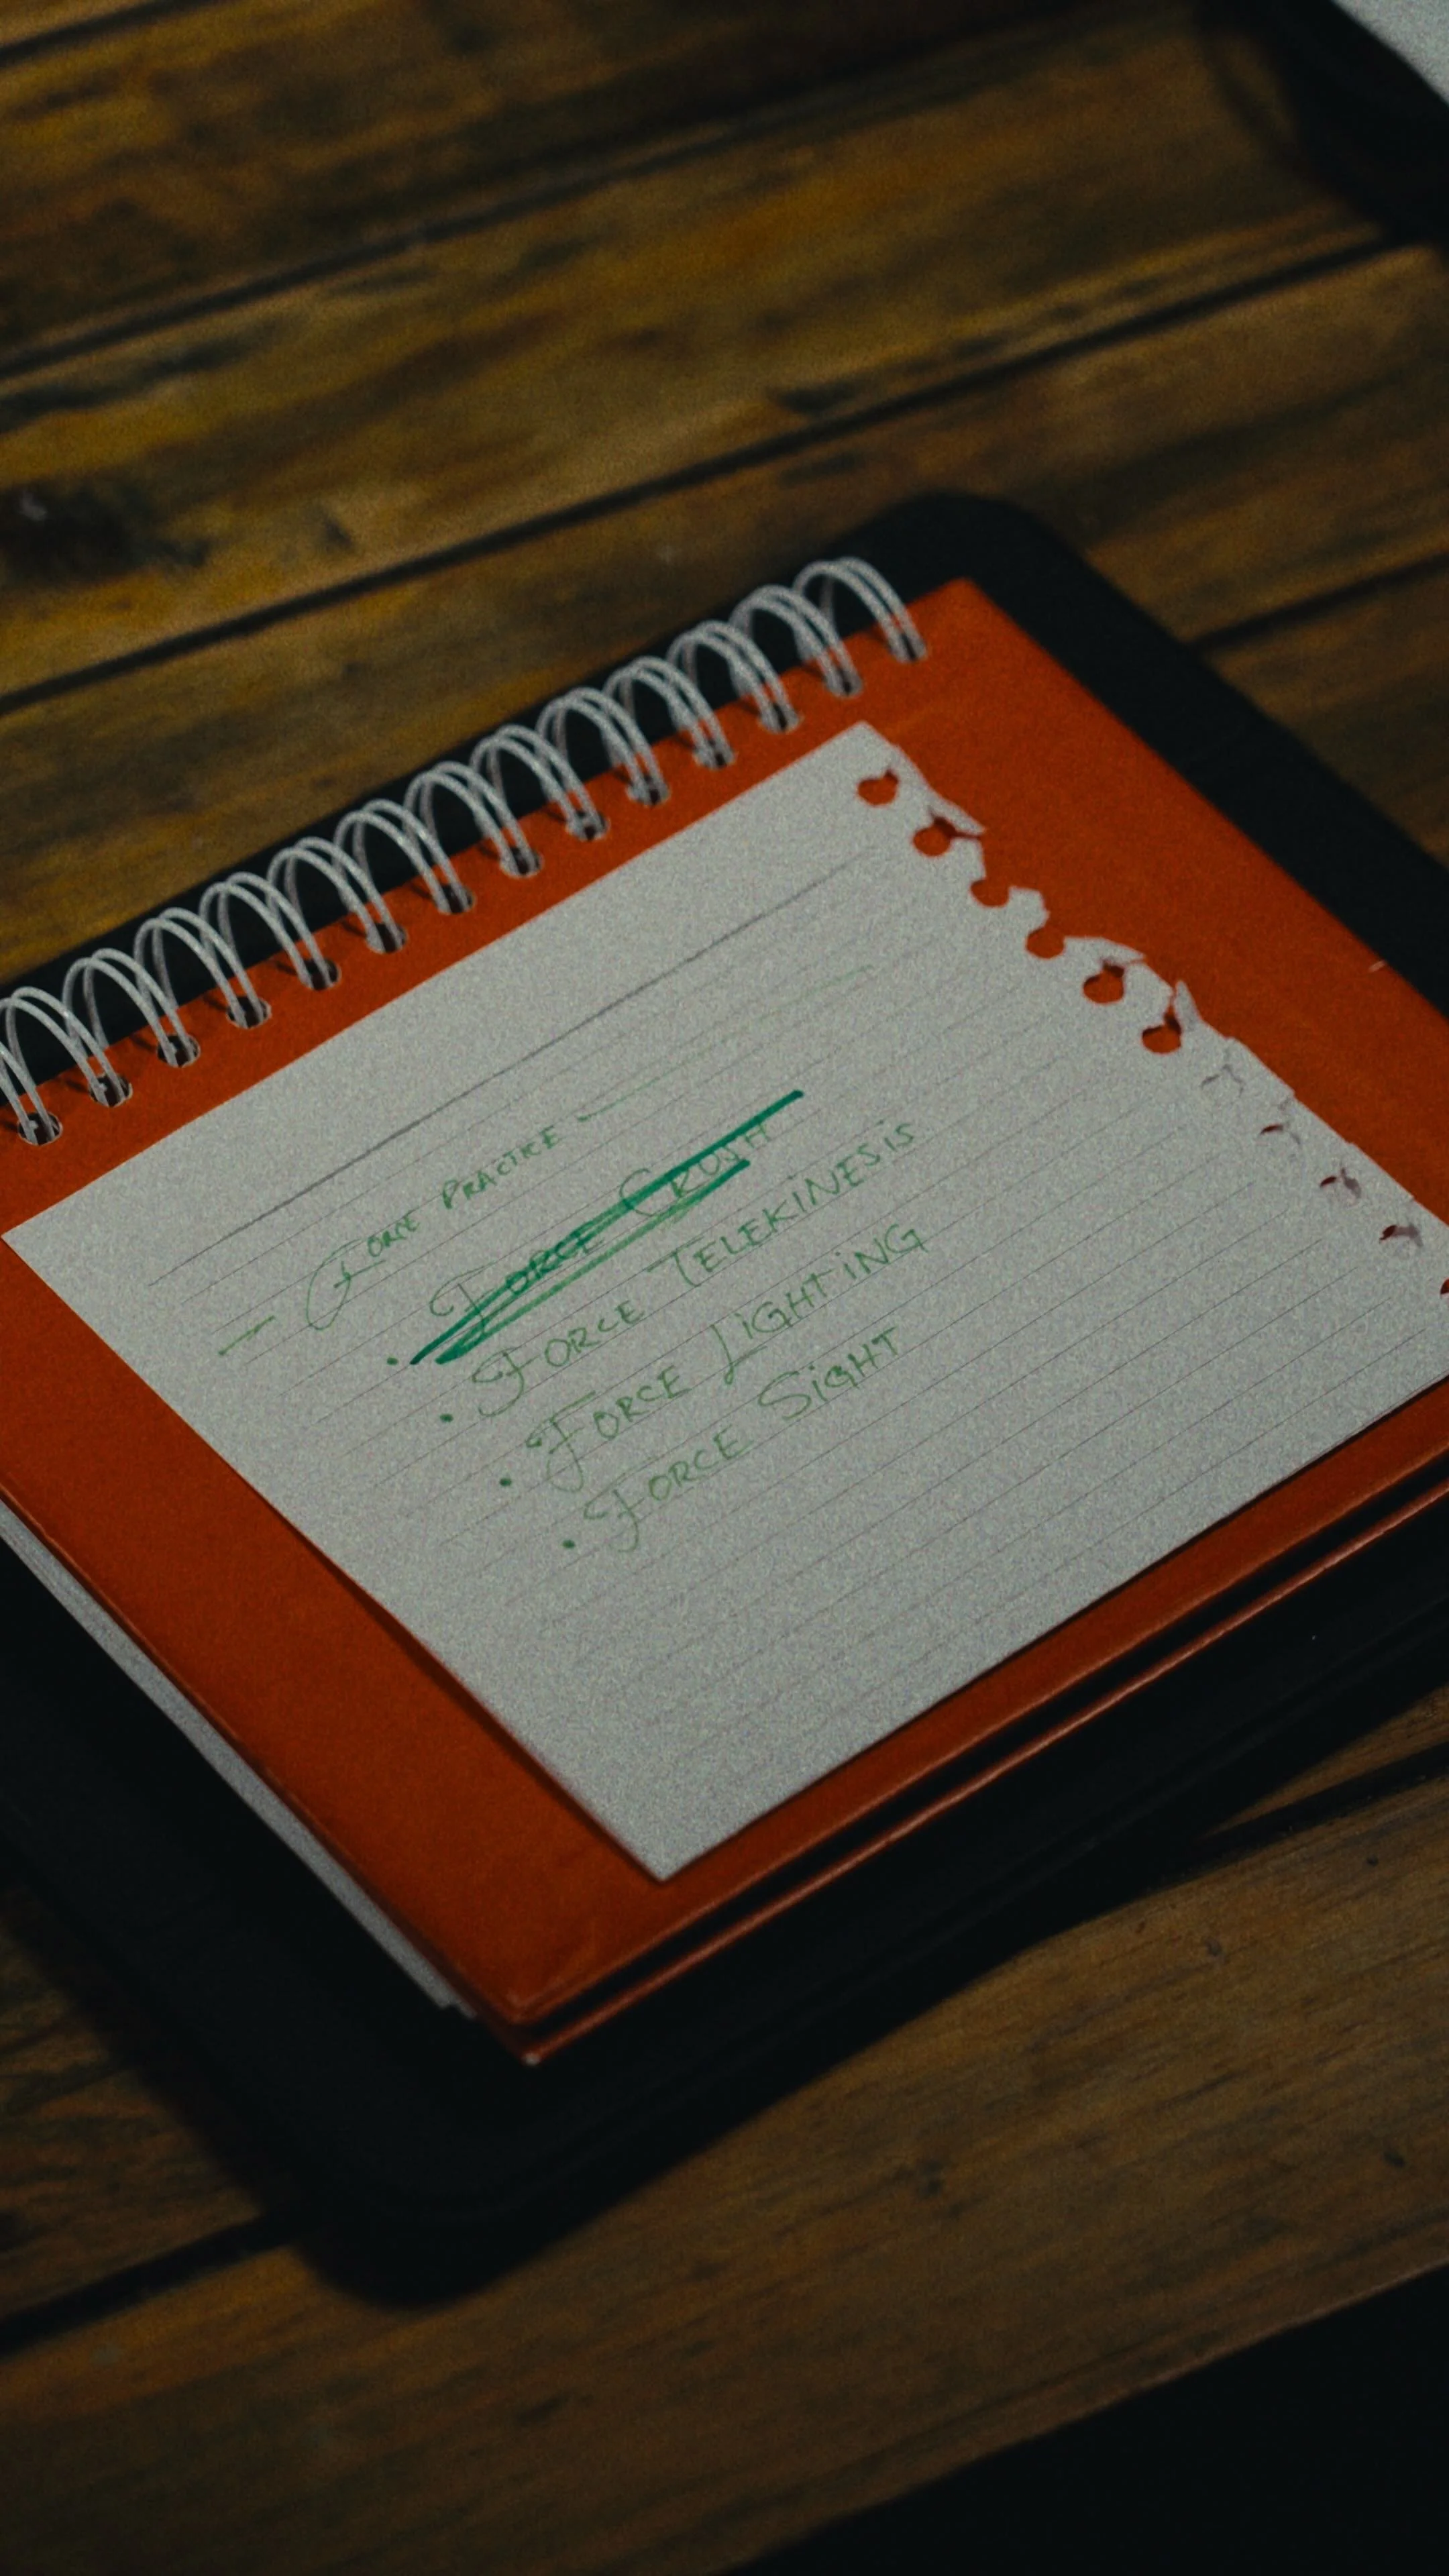 - Force Practice -
• Force Crush
• Force Telekinesis
• Force Lighting
• Force Sight